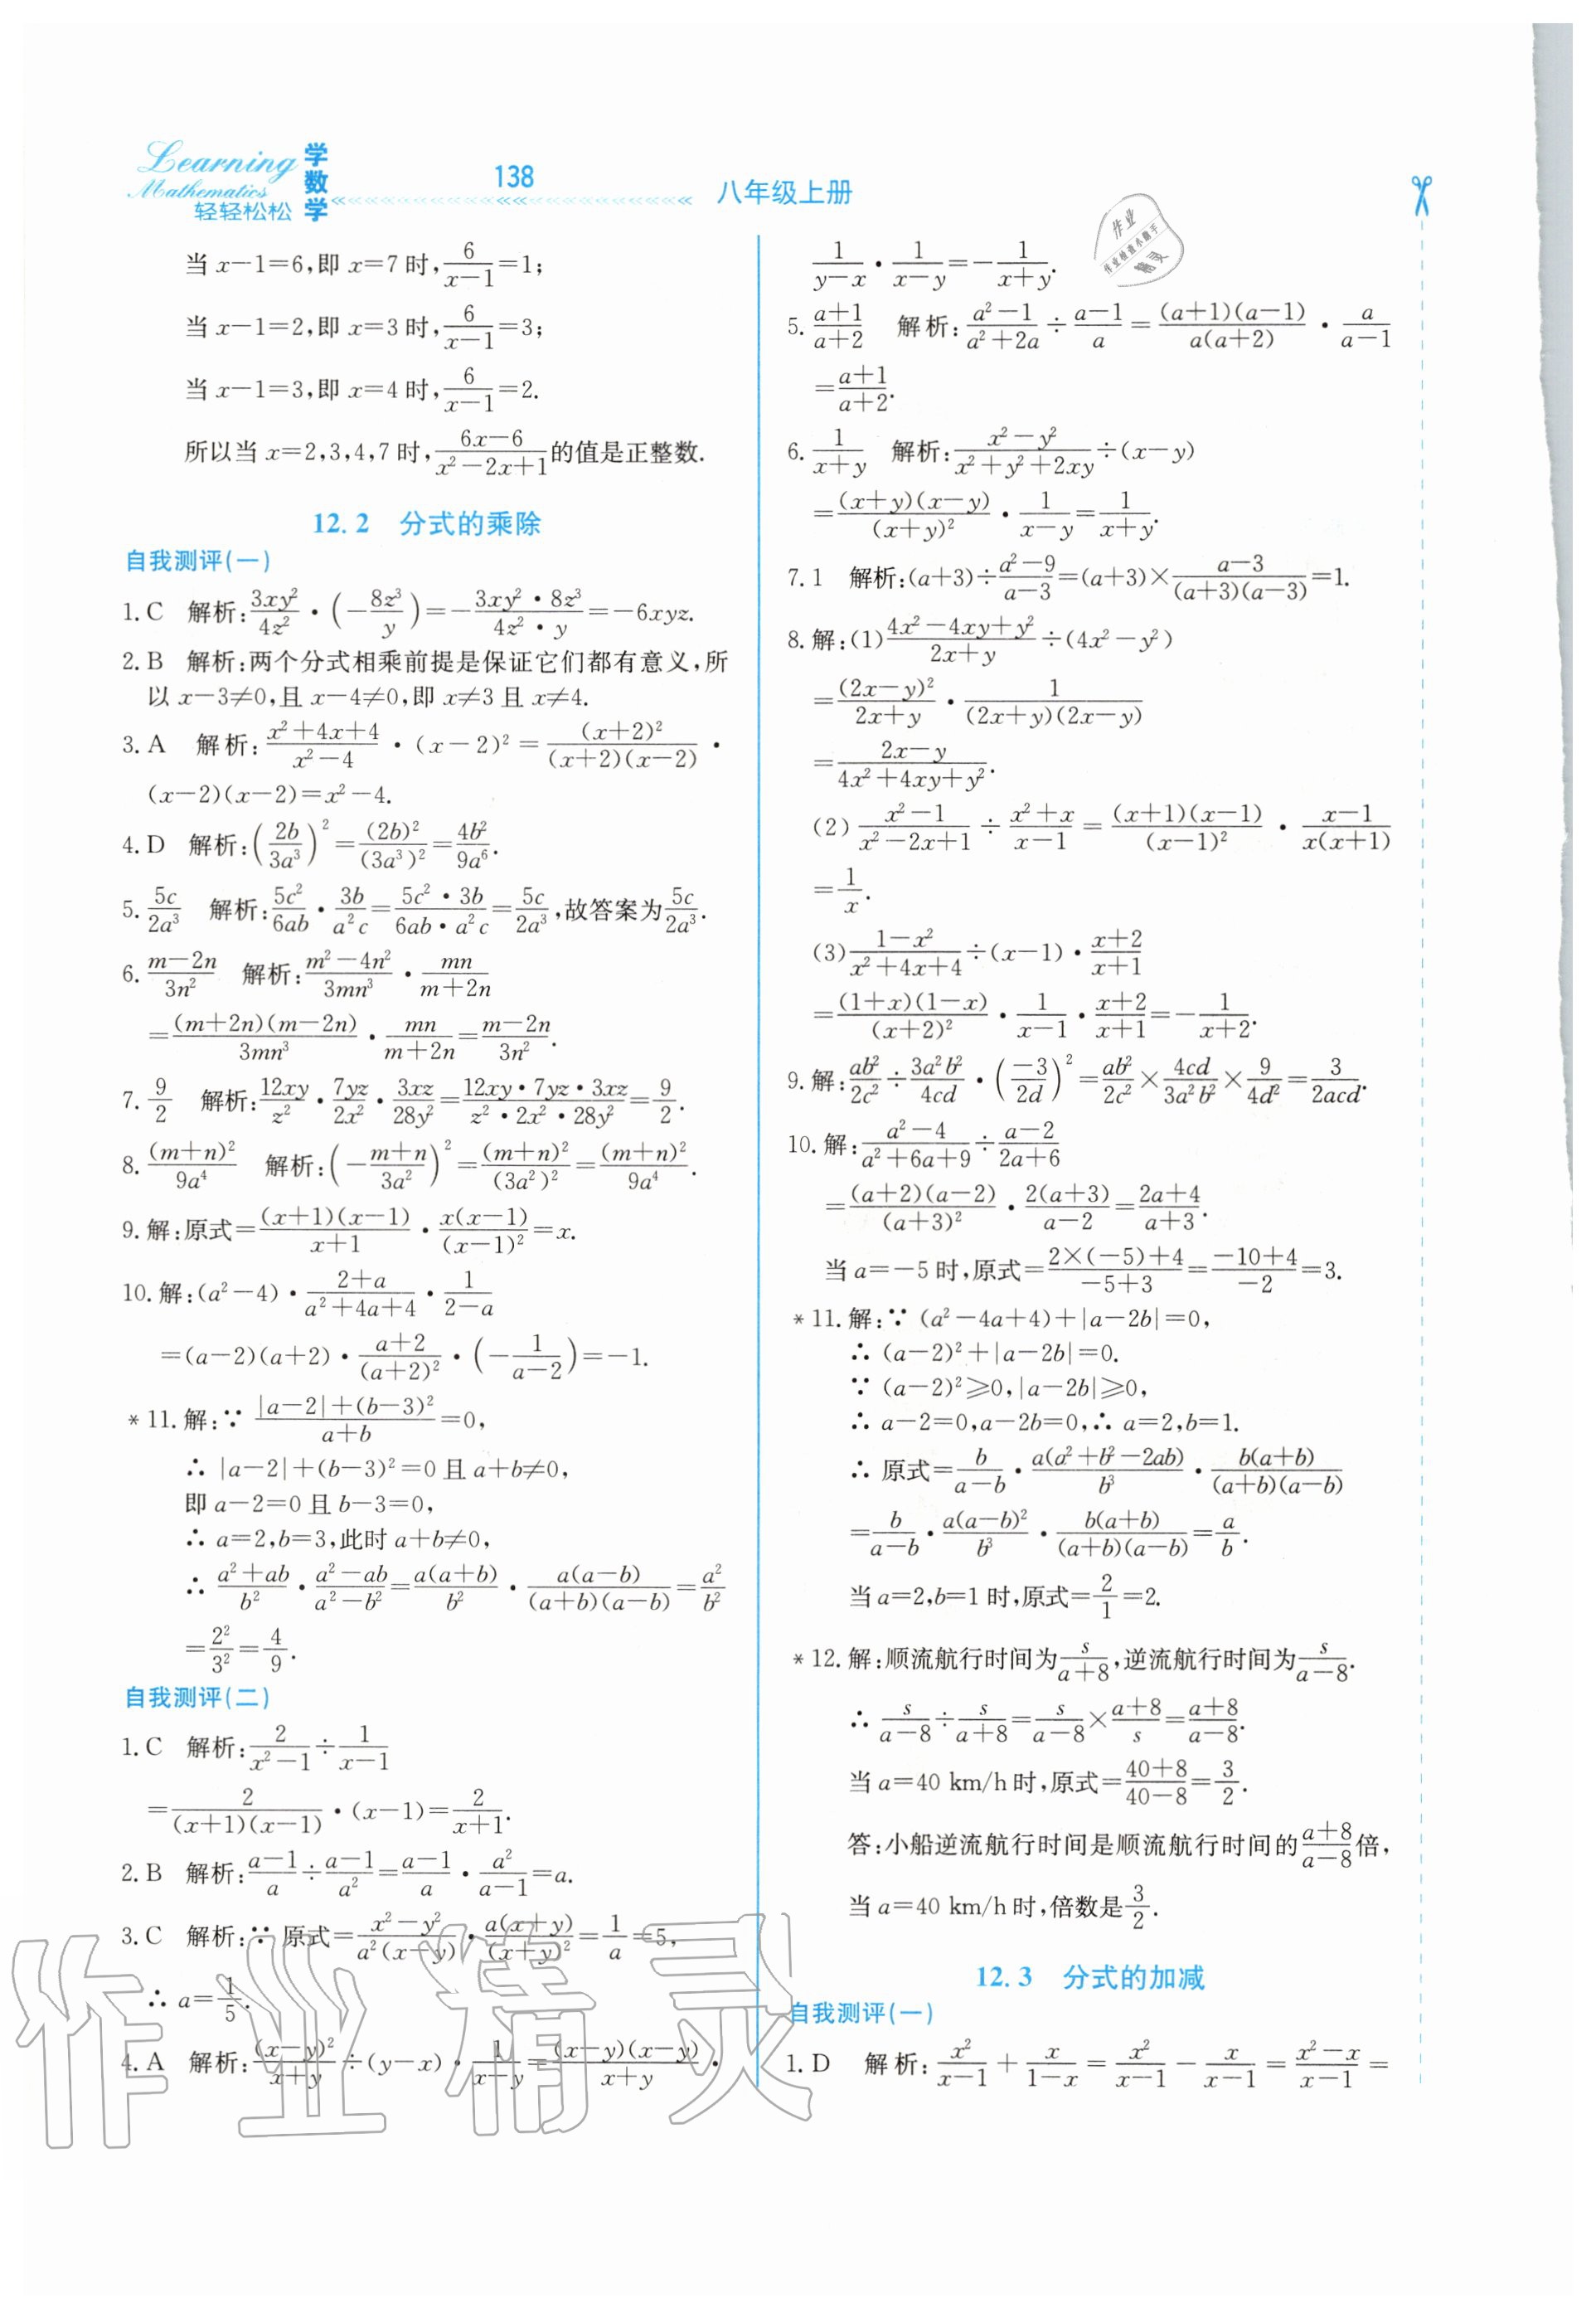 Learning
Mathematics
轻轻松松
学数学
138
八年级上册
当 x－1=6,即 x=7 时,6/(x－1)=1;
当 x－1=2,即 x=3 时,6/(x－1)=3;
当 x－1=3,即 x=4 时,6/(x－1)=2.
所以当 x=2,3,4,7 时,(6x－6)/(x²－2x+1)的值是正整数.
12.2 分式的乘除
自我测评(一)
1.C 解析:3xy²/4z²·(－8z³/y)=－(3xy²·8z³)/(4z²·y)=－6xyz.
2.B 解析:两个分式相乘前提是保证它们都有意义,所
以 x－3≠0,且 x－4≠0,即 x≠3 且 x≠4.
3.A 解析:(x²+4x+4)/(x²－4)·(x－2)²=(x+2)²/((x+2)(x－2))·
(x－2)(x－2)=x²－4.
4.D 解析:(2b/3a³)²=(2b)²/(3a³)²=4b²/9a⁶.
5.5c/2a³ 解析:5c²/6ab·3b/a²c=(5c²·3b)/(6ab·a²c)=5c/2a³,故答案为5c/2a³.
6.(m－2n)/3n² 解析:(m²－4n²)/3mn³·mn/(m+2n)
=((m+2n)(m－2n))/3mn³·mn/(m+2n)=(m－2n)/3n².
7.9/2 解析:12xy/z²·7yz/2x²·3xz/28y²=(12xy·7yz·3xz)/(z²·2x²·28y²)=9/2.
8.(m+n)²/9a⁴ 解析:(－(m+n)/3a²)²=(m+n)²/(3a²)²=(m+n)²/9a⁴.
9.解:原式=((x+1)(x－1))/(x+1)·(x(x－1))/(x－1)²=x.
10.解:(a²－4)·(2+a)/(a²+4a+4)·1/(2－a)
=(a－2)(a+2)·(a+2)/(a+2)²·(－1/(a－2))=－1.
*11.解:∵ (|a－2|+(b－3)²)/(a+b)=0,
∴ |a－2|+(b－3)²=0 且 a+b≠0,
即 a－2=0 且 b－3=0,
∴ a=2,b=3,此时 a+b≠0,
∴ (a²+ab)/b²·(a²－ab)/(a²－b²)=a(a+b)/b²·a(a－b)/((a+b)(a－b))=a²/b²
=2²/3²=4/9.
自我测评(二)
1.C 解析:2/(x²－1)÷1/(x－1)
=2/((x+1)(x－1))·(x－1)=2/(x+1).
2.B 解析:(a－1)/a÷(a－1)/a²=(a－1)/a·a²/(a－1)=a.
3.C 解析:∵ 原式=(x²－y²)/(a²(x－y))·a(x+y)/(x+y)²=1/a=5,
∴ a=1/5.
4.A 解析:(x－y)²/(x+y)÷(y－x)·1/(x－y)=((x－y)(x－y))/(x+y)·
1/(y－x)·1/(x－y)=－1/(x+y).
5.(a+1)/(a+2) 解析:(a²－1)/(a²+2a)÷(a－1)/a=((a+1)(a－1))/(a(a+2))·a/(a－1)
=(a+1)/(a+2).
6.1/(x+y) 解析:(x²－y²)/(x²+y²+2xy)÷(x－y)
=((x+y)(x－y))/(x+y)²·1/(x－y)=1/(x+y).
7.1 解析:(a+3)÷(a²－9)/(a－3)=(a+3)×(a－3)/((a+3)(a－3))=1.
8.解:(1)(4x²－4xy+y²)/(2x+y)÷(4x²－y²)
=(2x－y)²/(2x+y)·1/((2x+y)(2x－y))
=(2x－y)/(4x²+4xy+y²).
(2)(x²－1)/(x²－2x+1)÷(x²+x)/(x－1)=((x+1)(x－1))/(x－1)²·(x－1)/(x(x+1))
=1/x.
(3)(1－x²)/(x²+4x+4)÷(x－1)·(x+2)/(x+1)
=((1+x)(1－x))/(x+2)²·1/(x－1)·(x+2)/(x+1)=－1/(x+2).
9.解:ab²/2c²÷3a²b²/4cd·(－3/2d)²=ab²/2c²×4cd/3a²b²×9/4d²=3/2acd.
10.解:(a²－4)/(a²+6a+9)÷(a－2)/(2a+6)
=((a+2)(a－2))/(a+3)²·2(a+3)/(a－2)=(2a+4)/(a+3).
当 a=－5 时,原式=(2×(－5)+4)/(－5+3)=(－10+4)/(－2)=3.
*11.解:∵ (a²－4a+4)+|a－2b|=0,
∴ (a－2)²+|a－2b|=0.
∵ (a－2)²≥0,|a－2b|≥0,
∴ a－2=0,a－2b=0,∴ a=2,b=1.
∴ 原式=b/(a－b)·a(a²+b²－2ab)/b³·b(a+b)/((a+b)(a－b))
=b/(a－b)·a(a－b)²/b³·b(a+b)/((a+b)(a－b))=a/b.
当 a=2,b=1 时,原式=2/1=2.
*12.解:顺流航行时间为s/(a+8),逆流航行时间为s/(a－8).
∴ s/(a－8)÷s/(a+8)=s/(a－8)×(a+8)/s=(a+8)/(a－8).
当 a=40 km/h 时,原式=(40+8)/(40－8)=3/2.
答:小船逆流航行时间是顺流航行时间的(a+8)/(a－8)倍,
当 a=40 km/h 时,倍数是3/2.
12.3 分式的加减
自我测评(一)
1.D 解析:x²/(x－1)+x/(1－x)=x²/(x－1)－x/(x－1)=(x²－x)/(x－1)=
作业精灵